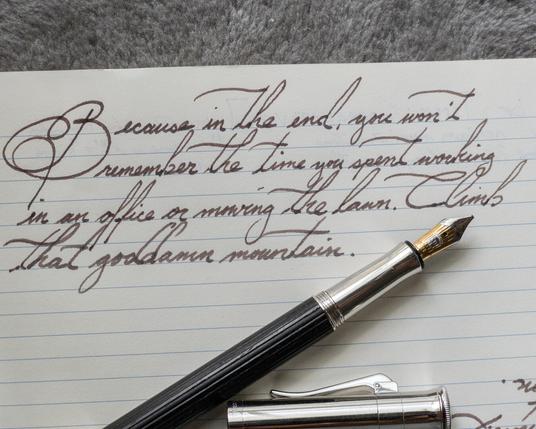 Because in the end, you won't
remember the time you spent working
in an office or mowing the lawn. Climb
that goddamn mountain.